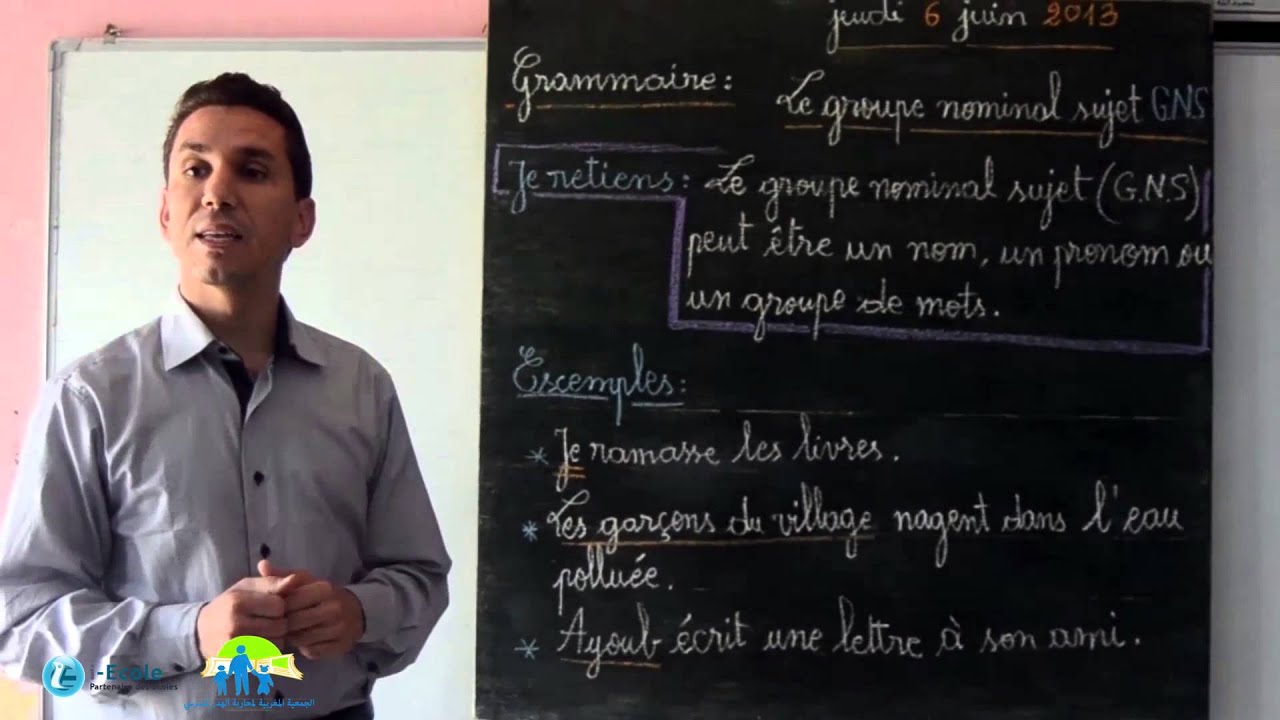 jeudi 6 juin 2013
Grammaire :
Le groupe nominal sujet GNS
Je retiens : Le groupe nominal sujet (G.N.S)
peut être un nom, un pronom ou
un groupe de mots.
Exemples :
* Je ramasse les livres.
* Les garçons du village nagent dans l'eau
polluée.
* Ayoub écrit une lettre à son ami.
i-Ecole
Partenaire des écoles
الجمعية المغربية لمحاربة الهدر المدرسي